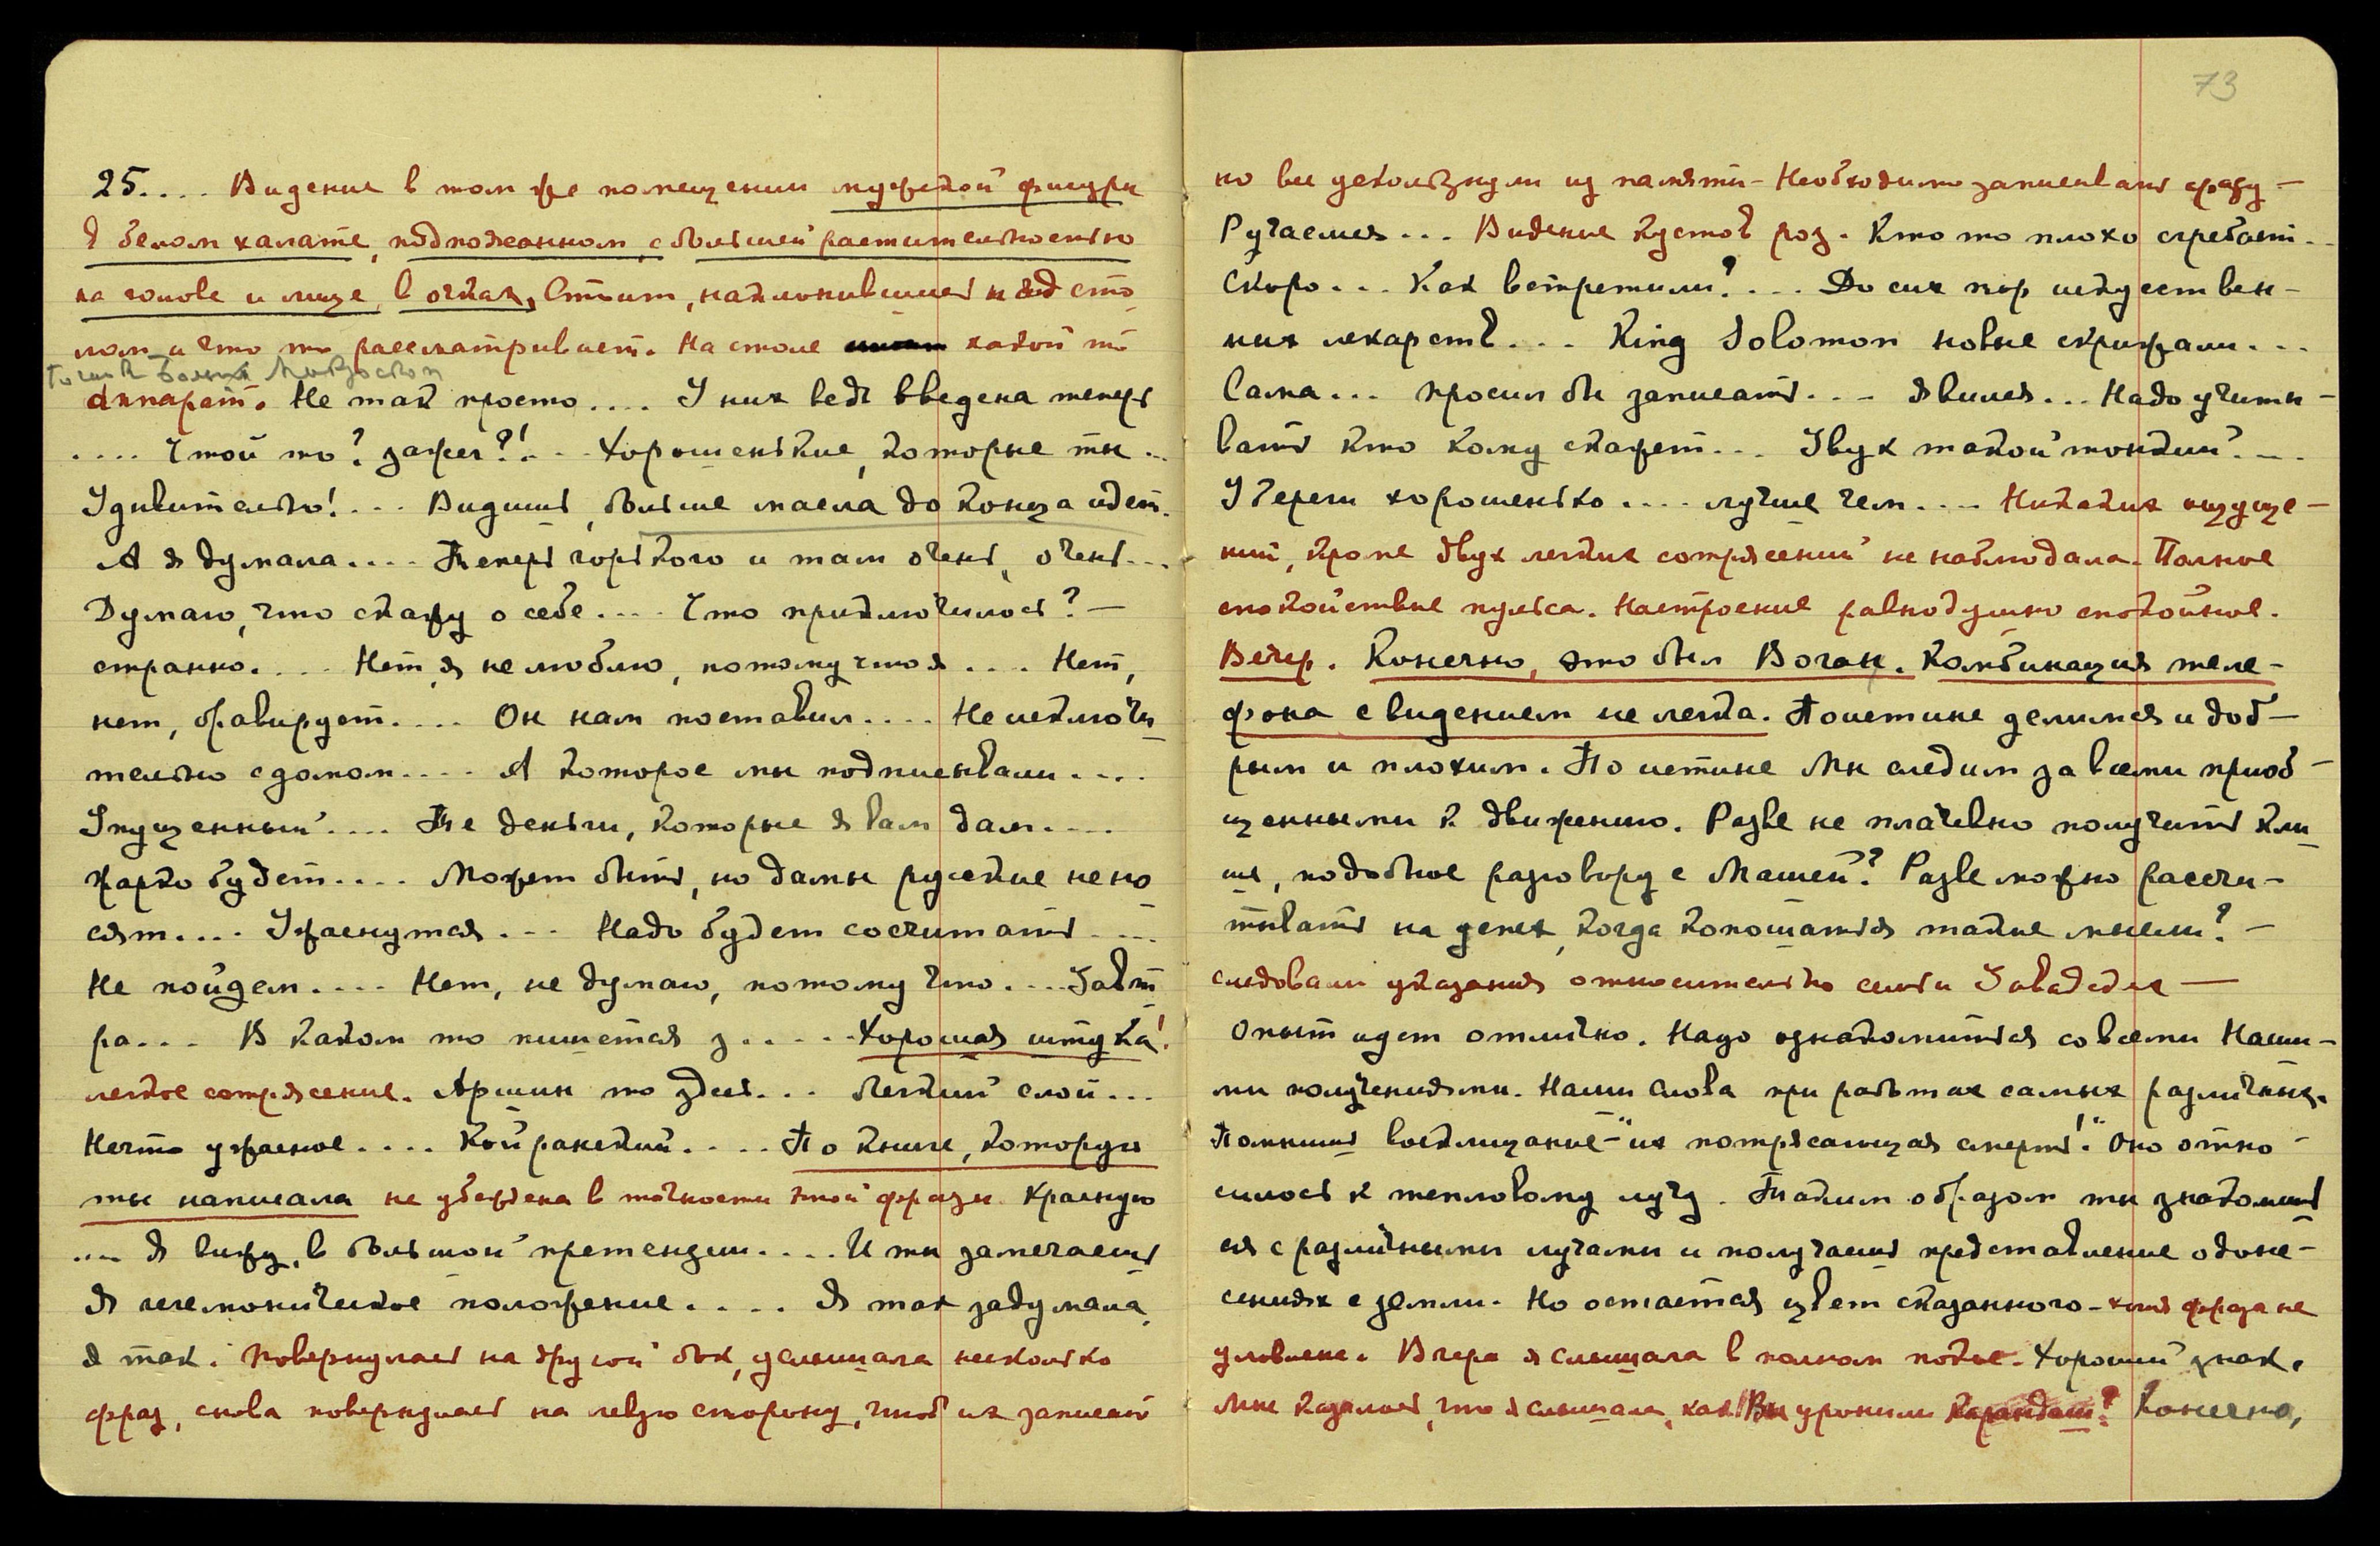 25.... Видение в том же помещении мужской фигуры
в белом халате, подпоясанном, с большей растительностью
на голове и лице, в очках. Стоит, наклонившись над сто
лом и что то рассматривает. На столе какой то
аппарат. Не так просто.... У них ведь введена теперь
.... Чтой то? зажег?!... Хорошенькие, которые ты...
Удивительно!... Видишь, больше масла до конца идет.
А я думала.... Теперь горького и там очень, очень...
Думаю, что скажу о себе.... Что приключилось? —
странно.... Нет, я не люблю, потому что я.... Нет,
нет, бравирует.... Он нам поставил.... Не исключи
тельно с домом.... А которое мы подписывали....
Упущенный.... Те деньги, которые я вам дам....
жарко будет.... Может быть, но дамы русские не но
сят.... Ужаснутся... Надо будет сосчитать....
Не пойдем.... Нет, не думаю, потому что.... Завт
ра... В каком то пишется з..... Хорошая штука!
легкое сотрясение. Аршин то здесь... Легкий слой...
Нечто ужасное.... Койранский.... По книге, которую
ты написала не убеждена в точности этой фразы. Красную
.... Я вижу, в большой претензии.... И ты замечаешь
Я гегемоническое положение.... Я так задумала,
я так. Повернулась на другой бок, услышала несколько
фраз, снова повернулась на левую сторону, чтоб их записать
73
но все ускользнули из памяти - Необходимо записывать сразу —
Ручаемся... Видение кустов роз. Кто то плохо сгребает...
Скоро... Как встретили?... До сих пор искусствен-
ных лекарств... King Solomon новые скрижали...
Сама... просил бы записать.... Явился... Надо учиты-
вать кто кому скажет... Звук такой тонкий?...
У Терезы хорошенько.... лучше чем.... Никаких ощуще-
ний, кроме двух легких сотрясений не наблюдала. Полное
спокойствие пульса. Настроение равнодушно спокойное.
Вечер. Конечно, это был Воган. Комбинация теле-
фона с видением не легка. Поистине делимся и доб-
рым и плохим. По истине Мы следим за всеми приоб-
щенными к движению. Разве не плачевно получить кли
ше, подобное разговору с Машей? Разве можно рассчи-
тывать на успех, когда копошатся такие мысли? —
следовали указания относительно семьи Завадских —
Опыт идет отлично. Надо ознакомиться со всеми Наши-
ми получениями. Наши слова при работах самых различных.
Помнишь восклицание - "их потрясающая смерть!" Оно отно-
силось к тепловому лучу. Таким образом ты знакомишь
ся с различными лучами и получаешь представление о доне-
сениях с земли. Но остается цвет сказанного - конец фразы не
уловлена. Вчера я слышала в полном покое. Хороший знак.
Мне казалось, что я слышала, как Вы уронили карандаш? Конечно,